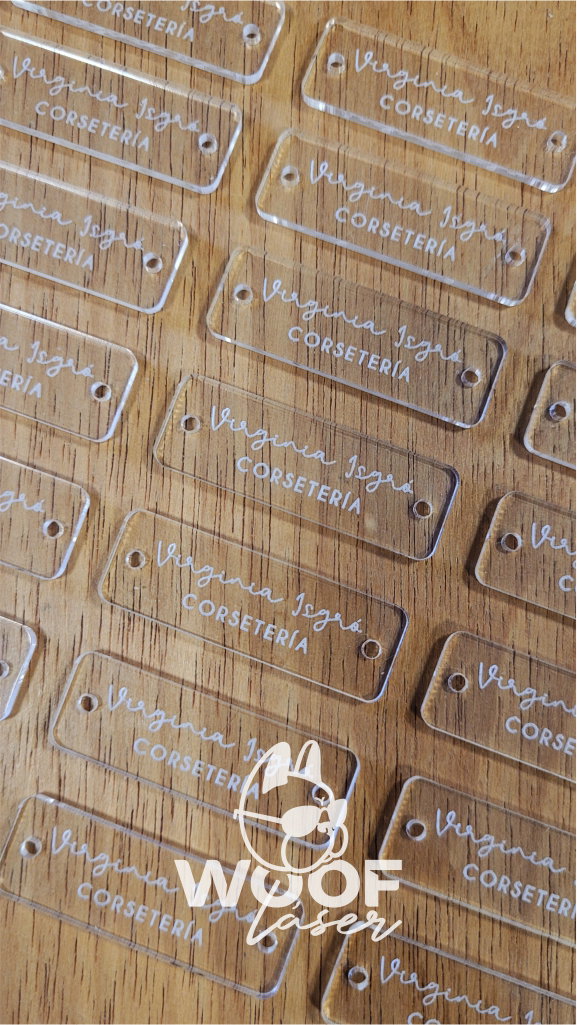 Isgró
CORSETERÍA
Virginia Isgró
CORSETERÍA
Virginia Isgró
CORSETERÍA
Virginia Isgró
CORSETERÍA
Isgró
Virginia Isgró
CORSETERÍA
Isgró
Virginia Isgró
CORSETERÍA
Virginia Isgró
CORSETERÍA
Virginia Isgró
CORSETERÍA
Virginia
Virginia Isgró
CORSETERÍA
Virginia
CORSETERÍA
Virginia
WOOF
Laser